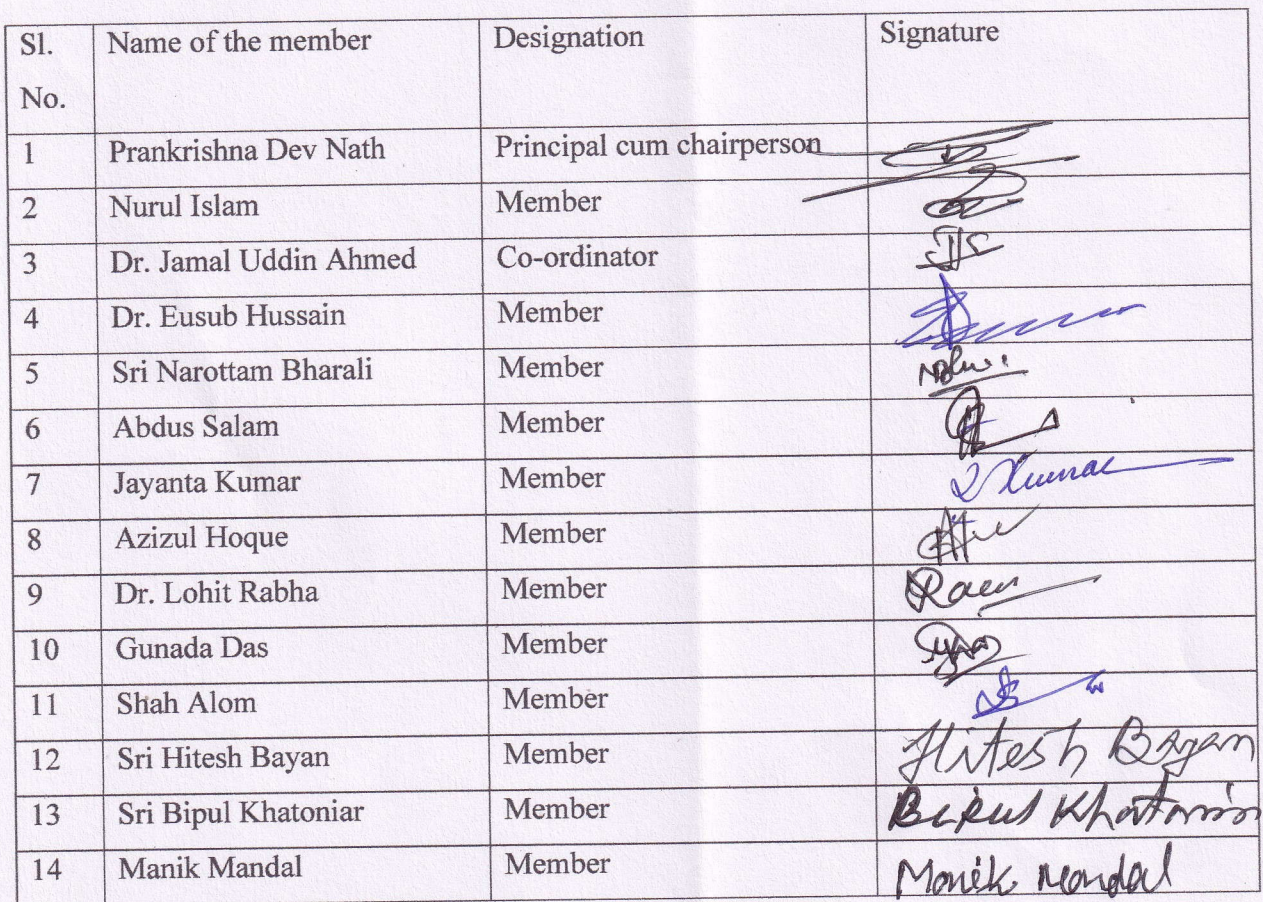 Sl. No. Name of the member Designation Signature
1 Prankrishna Dev Nath Principal cum chairperson
2 Nurul Islam Member
3 Dr. Jamal Uddin Ahmed Co-ordinator
4 Dr. Eusub Hussain Member
5 Sri Narottam Bharali Member
6 Abdus Salam Member
7 Jayanta Kumar Member
8 Azizul Hoque Member
9 Dr. Lohit Rabha Member
10 Gunada Das Member
11 Shah Alom Member
12 Sri Hitesh Bayan Member Hitesh Bayan
13 Sri Bipul Khatoniar Member Bipul
14 Manik Mandal Member Manik Mondal